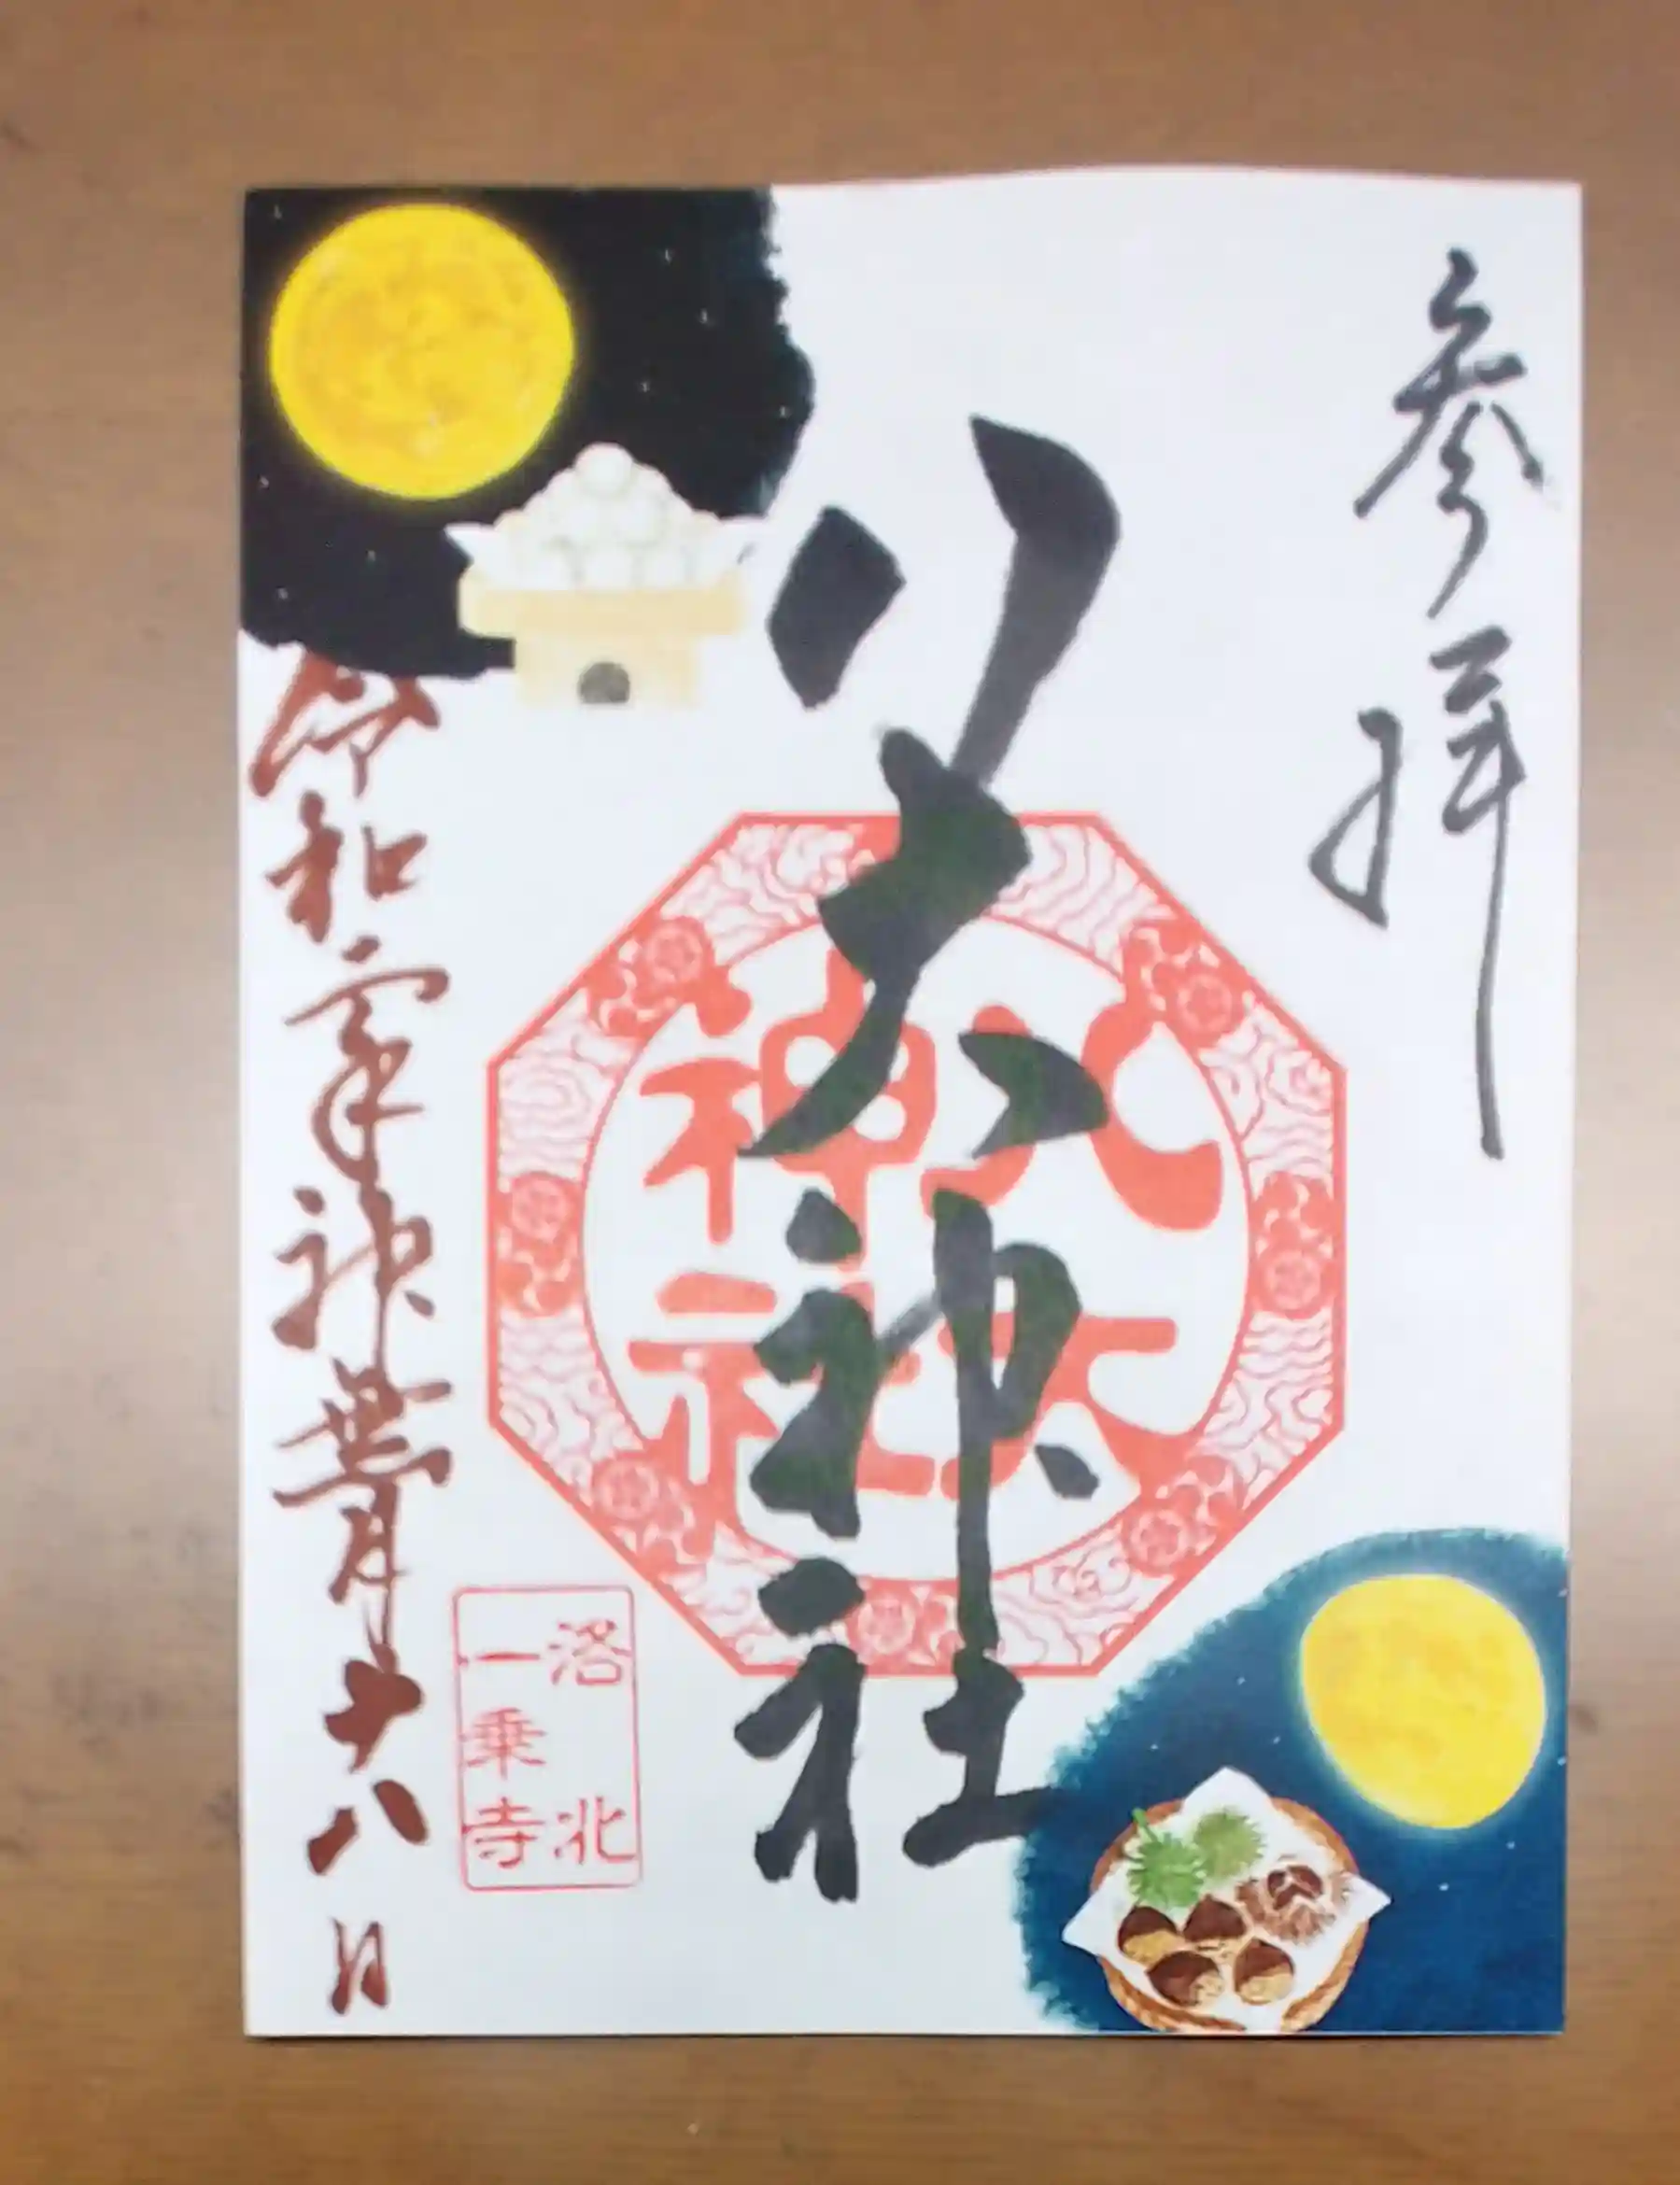 参拝
八大神社
八大
神社
令和六年神無月十八日
洛北
一乗寺